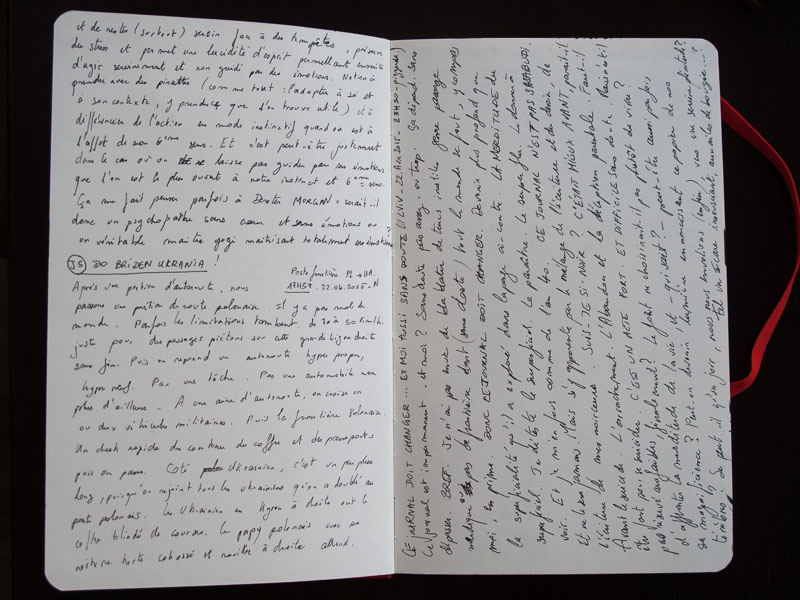 et de rester (surtout) serein face à des tempêtes, préserver
du stress et permet une lucidité d'esprit permettant ensuite
d'agir sereinement et non guidé par des émotions. Notion à
prendre avec des pincettes (comme tout : l'adapter à soi et
à son contexte, y prendre ce que l'on trouve utile) et à
différencier de l'action en mode instinctif quand on est à
l'affut de son 6ème sens. Et c'est peut-être justement
dans le cas où on se laisse pas guider par ses émotions
que l'on est le plus ouvert à notre instinct et 6ème sens.
Ça me fait penser parfois à Dexter MORGAN : serait-il
donc un psychopathe sans cœur et sans émotions ou
un véritable maître yogi maitrisant totalement ses émotions?
J5 DO BRIDEN UKRANIA !
Poste frontière PL → UA.
17H57. 22.04.2015
Après une portion d'autoroute, nous
passons une portion de route polonaise. Il y a pas mal de
monde. Parfois les limitations tombent de 70 à 50 km/h
juste pour des passages piétons sur cette grande ligne droite
sans fin. Puis on reprend un autoroute hyper propre,
hyper neuf. Pas une tâche. Pas une automobile non
plus d'ailleurs. A une aire d'autoroute, on croise un
ou deux véhicules militaires. Puis la frontière Polonaise.
Un check rapide du contenu du coffre et des passeports
puis on passe. Coté Ukrainien, c'est un peu plus
long, puisqu'on rejoint tous les ukrainiens qu'on a doublé au
poste polonais. Les Ukrainiens en à droite ont le
coffre blindé de courses. Le papy polonais avec sa
voiture toute cabossé et à droite attend.
CE JOURNAL DOIT CHANGER... ET MOI AUSSI SANS DOUTE (LVIV - 22.Avr.2015 - 23H50 -
Ce journal est impermanent. et moi? Sans doute pas assez. ou trop. Ça dépend. Sans
dépasser. BREF. Je n'ai pas envie de bla bla bla de trucs inutiles genre passage
de frontière dont (sans doute) tout le monde se fout, y compris
moi, en prime. DONC CE JOURNAL DOIT CHANGER. Devenir plus profond que
la superficialité qu'il a exploré dans la page ci-contre. LA MERDITUDE DU
superficiel. Je déteste le superficiel. Le paraître. Le superflu. Le donner à
voir. Et je m'en fous comme de l'an 40. CE JOURNAL N'EST PAS SARABUDI
Et ne le sera jamais. Mais s'y apparente par le mélange de l'écriture et du dessin, de
l'écriture de mes noirceurs. Suis-je si noir? C'ETAIT MIEUX AVANT, paraît-il
Avant le suicide. L'arrachement. L'Abandon et la déception parentale. Faut-il
être fort pour se suicider. C'EST UN ACTE FORT. ET DIFFICILE sans doute. Mais n'est-il
Le fort ne choisirait-il pas plutôt de vivre?
d'affronter la merditude de la vie et - qui sait? - peut-être aussi, parfois,
sa magnificence? Peut-on devenir lumière en noircissant ce papier de nos
ténèbres? Se peut-il qu'un jour, nous nous envolions, enfin, vers une sereine plénitude?
insouciant, aux ailes de bougie...?